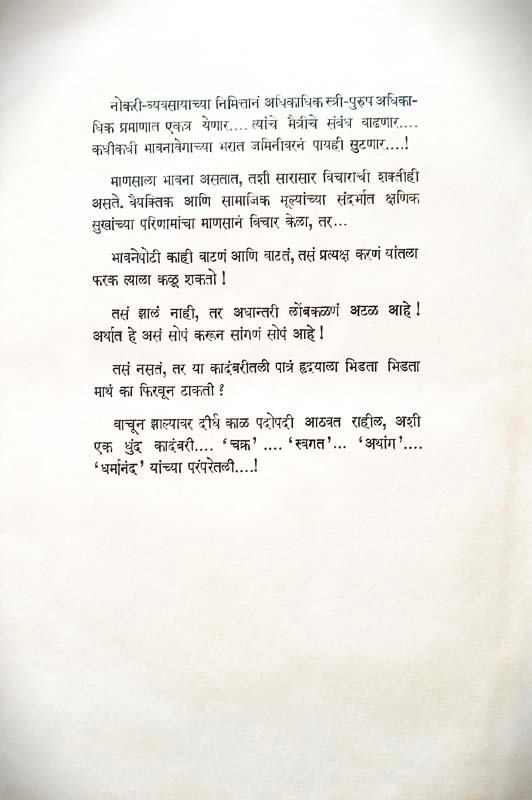 नोकरी-व्यवसायाच्या निमित्तानं अधिकाधिक स्त्री-पुरुप अधिका-
धिक प्रमाणात एकत्र येणार.... त्यांचे मैत्रीचे संबंध वाढणार....
कधीकधी भावनावेगाच्या भरात जमिनीवरनं पायही सुटणार....!
माणसाला भावना असतात, तशी सारासार विचाराची शक्तीही
असते. वैयक्तिक आणि सामाजिक मूल्यांच्या संदर्भात क्षणिक
सुखांच्या परिणामांचा माणसानं विचार केला, तर...
भावनेपोटी काही वाटणं आणि वाटतं, तसं प्रत्यक्ष करणं यांतला
फरक त्याला कळू शकतो !
तसं झालं नाही, तर अधान्तरी लोंबकळणं अटळ आहे !
अर्थात हे असं सोपं करून सांगणं सोपं आहे !
तसं नसतं, तर या कादंबरीतली पात्रं हृदयाला भिडता भिडता
माथं का फिरवून टाकती ?
वाचून झाल्यावर दीर्घ काळ पदोपदी आठवत राहील, अशी
एक धुंद कादंबरी.... ‘चक्र’ .... ‘स्वगत’... ‘अथांग’....
‘धर्मानंद’ यांच्या परंपरेतली....!